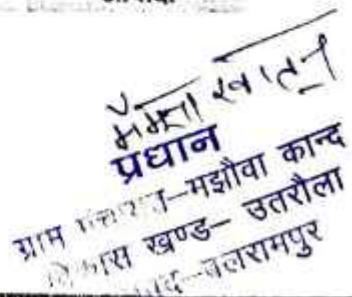 खातून
प्रधान
ग्राम पंचायत-मझौवा कान्द
विकास खण्ड- उतरौला
जनपद-बलरामपुर